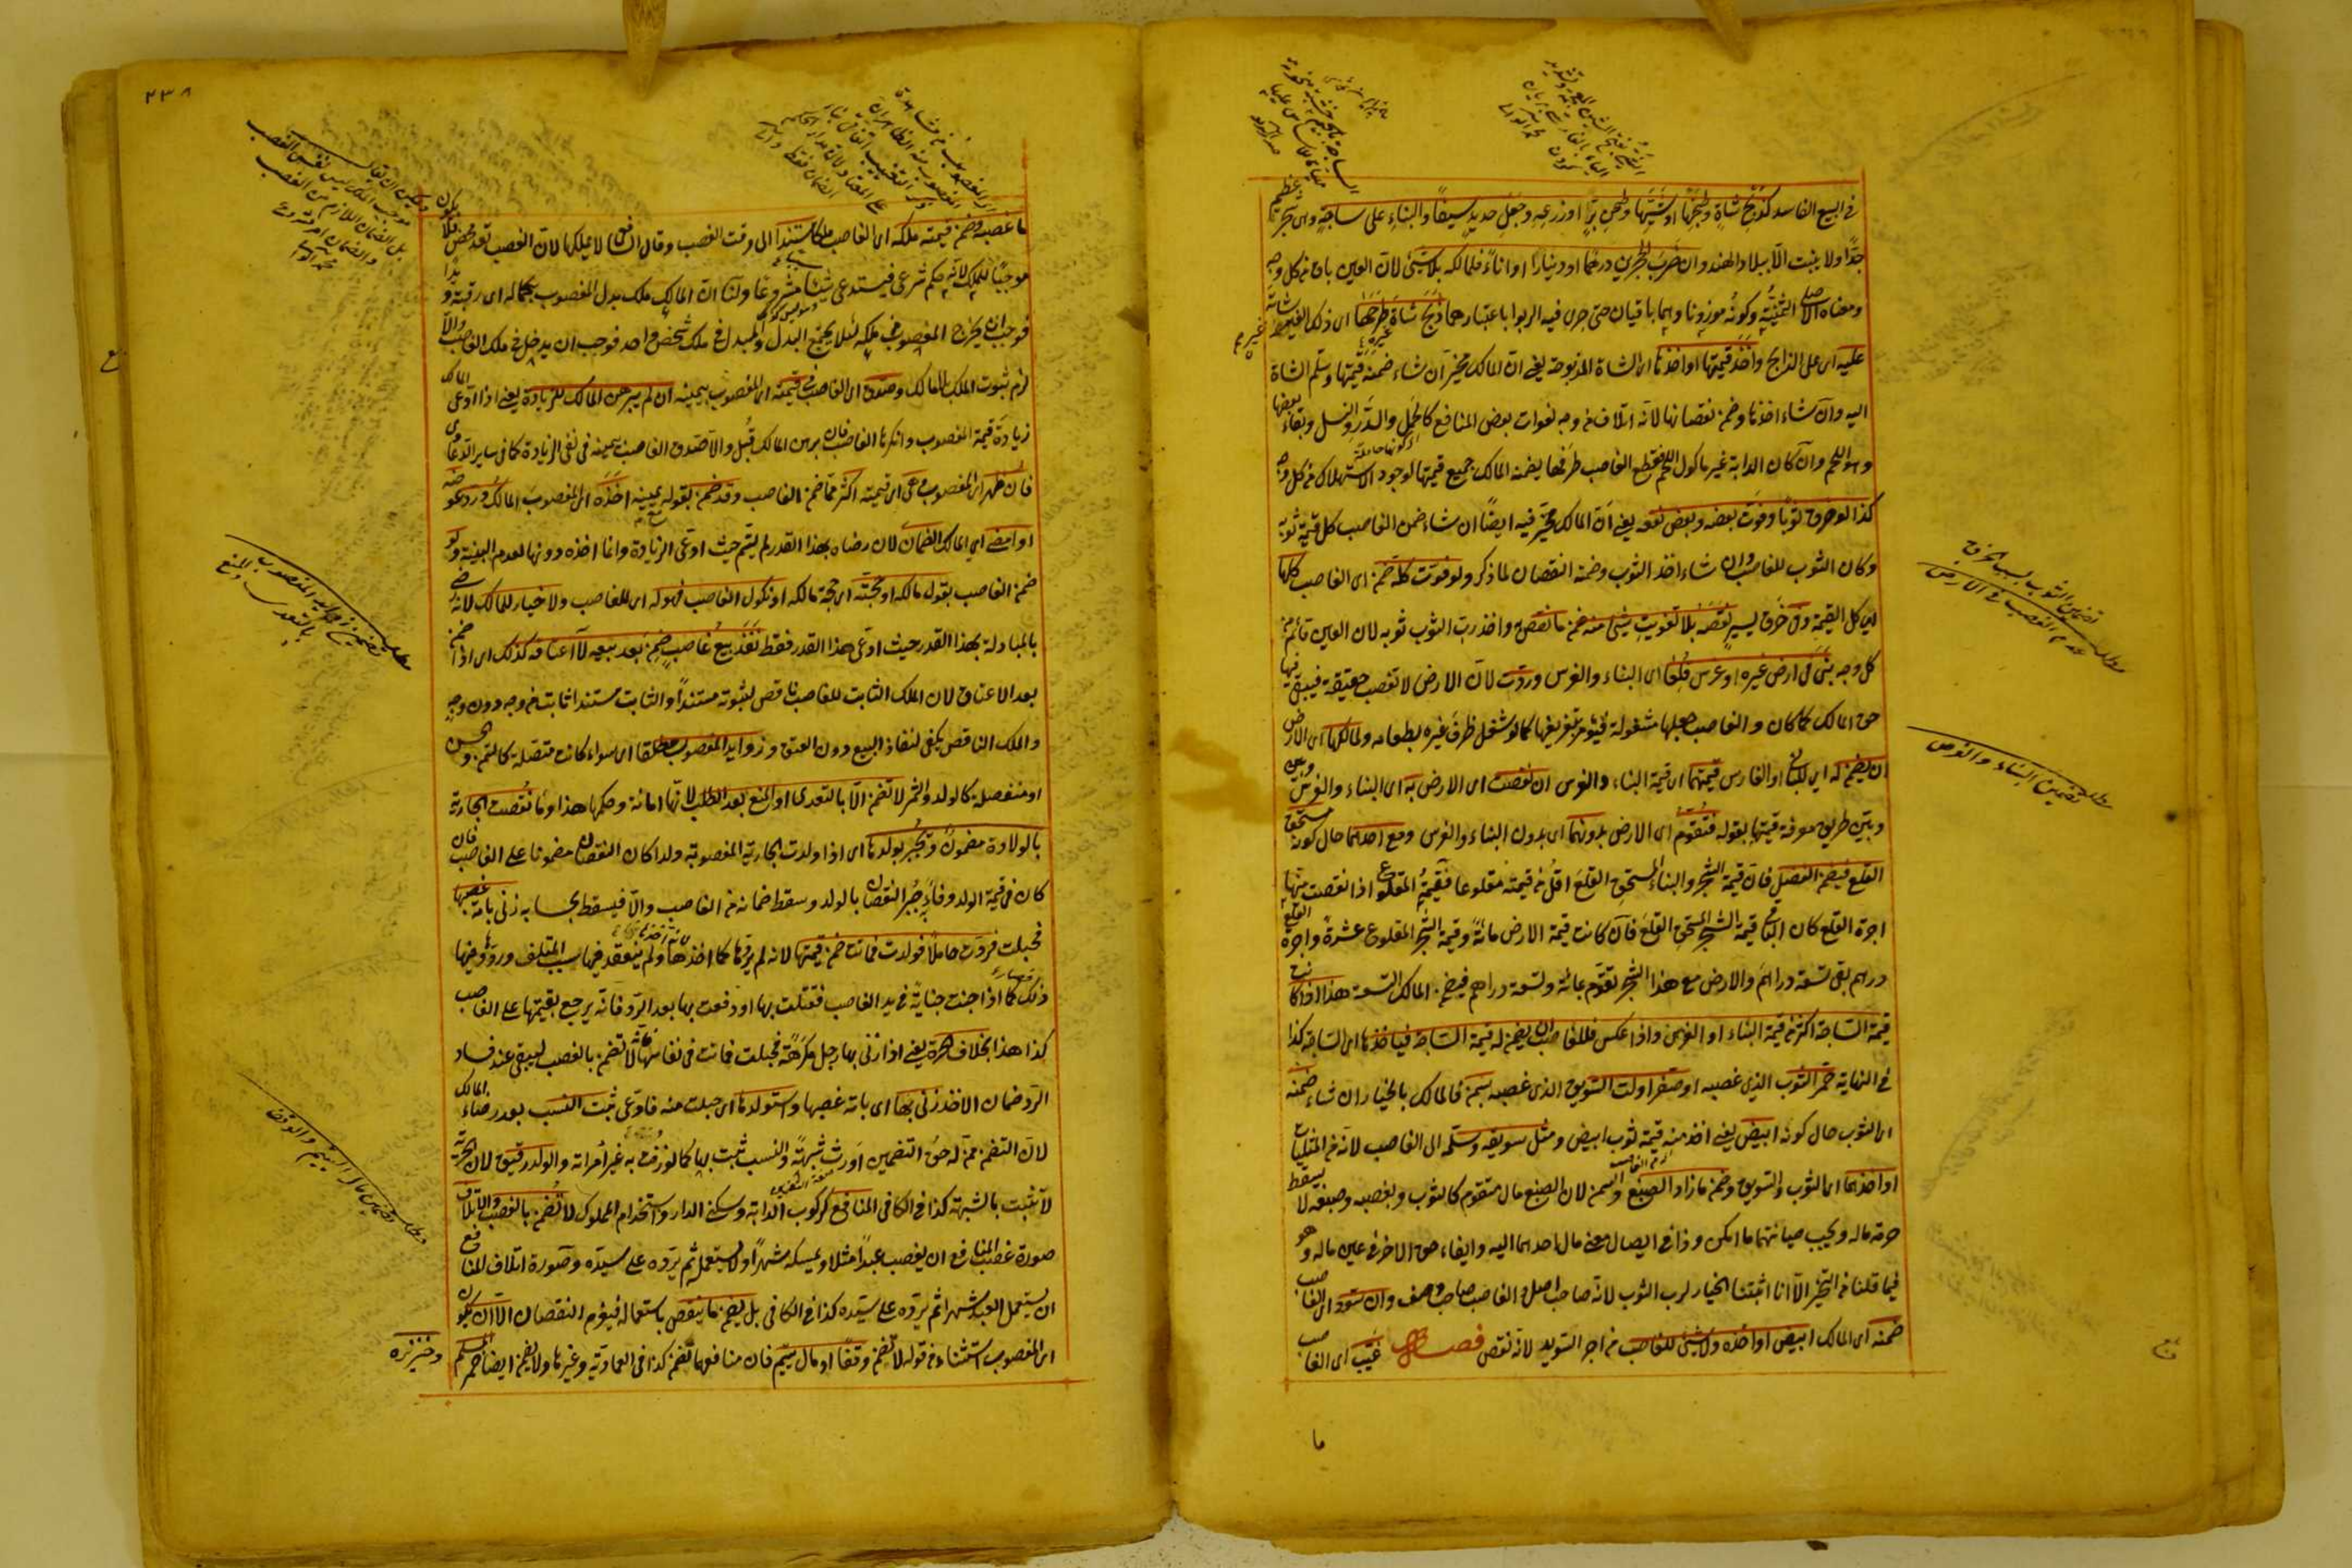 في البيع الفاسد كذبح شاة وطبخها او شيّها وطحن برّ او زرعه وجعل حديد سيفا والبناء على ساجة وهى شجر عظيم
جدًا ولا ينبت الا ببلاد الهند وان ضرب الحجرين درهما او دينارا او اناءً فلمالكه بلا شيء لان العين باق من كل وجه
ومعناه الاصلي الثمنية وكونه موزونا وهما باقيان حتى جرى فيه الربوا باعتبارهما ذبح شاة غيره طرحها اى ذلك الغير
عليه اى على الذابح واخذ قيمتها او اخذها اى الشاة المذبوحة يعني ان المالك مخير ان شاء ضمنه قيمتها وسلم الشاة
اليه وان شاء اخذها وضمن نقصانها لانه اتلاف من وجه لفوات بعض المنافع كالحمل والدر والنسل وبقاء بعضها
وهو اللحم وان كان الدابة غير ماكول اللحم فقطع الغاصب طرفها يضمنه المالك جميع قيمتها لوجود الاستهلاك من كل وجه
كذا لو خرق ثوبا وفوّت بعضه وبعض نفعه يعني ان المالك مخير فيه ايضًا ان شاء ضمن الغاصب كل قيمة ثوبه
وكان الثوب للغاصب وان شاء اخذ الثوب وضمنه النقصان لما ذكر ولو فوّت كله ضمن اى الغاصب كلها
اى كل القيمة وفي خرق يسير نقصه بلا تفويت شيء منه ضمن ما نقص واخذ رب الثوب ثوبه لان العين قائم من
كل وجه بنى في ارض غيره او غرس قلعا اى البناء والغرس وردّت لان الارض لا تغصب حقيقة فيبقى فيها
حق المالك كما كان والغاصب جعلها مشغولة فيؤمر بتفريغها كما لو شغل ظرف غيره بطعامه ولمالكها اى الارض
ان يضمن له اى للباني او الغارس قيمتهما اى قيمة البناء والغرس ان نقصت اى الارض به اى البناء والغرس
وبيّن طريق معرفة قيمتها بقوله فتقوّم اى الارض بدونهما اى بدون البناء والغرس ومع احدهما حال كونه مستحق
القلع فيضمن الفضل فان قيمة الشجر والبناء المستحق القلع اقل من قيمته مقلوعا فقيمة المقلوع اذا نقصت منها
اجرة القلع كان الباقي قيمة الشجر المستحق القلع فان كانت قيمة الارض مائة وقيمة الشجر المقلوع عشرة واجرة القلع
درهم بقي تسعة دراهم والارض مع هذا الشجر تقوّم بمائة وتسعة دراهم فيضمن المالك التسعة هذا اذا كانت
قيمة الساجة اكثر من قيمة البناء او الغرس واذا عكس فللغاصب ان يضمن له قيمة الساجة فياخذها اى الساجة كذا
في النهاية حمّر الثوب الذي غصبه او صفّر او لتّ السويق الذي غصبه بسمن فالمالك بالخيار ان شاء ضمنه
اى الثوب حال كونه ابيض يعني اخذ منه قيمة ثوب ابيض ومثل سويقه وسلمه الى الغاصب لانه من المثليات
او اخذهما اى الثوب والسويق وضمن ما زاد الصبغ والسمن لان الصبغ مال متقوم كالثوب وبغصبه وصبغه لا يسقط
حرمة ماله ويجب صيانتهما ما امكن وذا في ايصال معنى مال احدهما اليه وابقاء حق الاخر في عين ماله وهو
فيما قلنا من التخيير الا انا اثبتنا الخيار لرب الثوب لانه صاحب اصل والغاصب صاحب وصف وان سوّد اى الغاصب
ضمنه اى المالك ابيض او اخذه ولا شيء للغاصب من اجر التسويد لانه نقص فصل غيّب اى الغاصب
ما
تضمين الثوب بسبب الخرق
عدم الغصب في الارض
مطلب تضمين البناء والغرس
٢٣٨
ما غصبه وضمن قيمته ملكه اى الغاصب ملكا مستندا الى وقت الغصب وقال الشافعي لا يملكها لان الغصب تعد محض فلا يكون
موجبًا للملك لانه حكم شرعي فيستدعي شيئا مشروعا ولنا ان المالك ملك بدل المغصوب بكماله اى رقبة ويدا
فوجب ان يخرج المغصوب من ملكه لئلا يجتمع البدل والمبدل في ملك شخص واحد فوجب ان يدخل في ملك الغاصب والا
لزم ثبوت الملك بلا مالك وصدق اى الغاصب في قيمته اى المغصوب بيمينه ان لم يبرهن المالك للزيادة يعني اذا ادعى المالك
زيادة قيمة المغصوب وانكرها الغاصب فان برهن المالك قبل والا صدق الغاصب بيمينه في نفي الزيادة كما في ساير الدعاوى
فان ظهر اى المغصوب وهى اى قيمته اكثر مما ضمن الغاصب وقد ضمن بقوله بيمينه اخذه اى المغصوب المالك ورد عوضه
او امضى اى المالك الضمان لان رضاه بهذا القدر لم يتم حيث ادعى الزيادة وانما اخذه دونها لعدم البينة ولو
ضمن الغاصب بقول مالكه او بحجته اى حجة مالكه او نكول الغاصب فهو له اى للغاصب ولا خيار للمالك لانه رضي
بالمبادلة بهذا القدر حيث ادعى هذا القدر فقط نفذ بيع غاصب ضمن بعد بيعه لا اعتاقه كذلك اى اذا ضمن
بعد الاعتاق لان الملك الثابت للغاصب ناقص لثبوته مستندًا والثابت مستندا ثابت من وجه دون وجه
والملك الناقص يكفي لنفاذ البيع دون العتق وزوايد المغصوب مطلقا اى سواء كانت متصلة كالسمن والحسن
او منفصلة كالولد والثمر لا تضمن الا بالتعدى او المنع بعد الطلب لانها امانة وحكمها هذا وما نقصت الجارية
بالولادة مضمون ويجبر بولدها اى اذا ولدت الجارية المغصوبة ولدا كان النقصان مضمونا على الغاصب فان
كان في قيمة الولد وفاء جبر النقصان بالولد وسقط ضمانه من الغاصب والا فيسقط بحسابه زنى بامة غصبها
فحبلت فردّت حاملا فولدت فماتت ضمن قيمتها لانه لم يردها كما اخذها ولم ينعقد فيها سبب التلف ورد وفيها
ذلك كما اذا جنت جناية في يد الغاصب فقتلت بها او دفعت بها بعد الرد فانه يرجع بقيمتها على الغاصب
كذا هذا بخلاف الحرة يعني اذا زنى بها رجل مكرهة فحبلت فماتت في نفاسها لا تضمن بالغصب ليبقى عند فساد
الرد ضمان الاخذ زنى بها اى بامة غصبها واستولدها اى حبلت منه فادعى ثبت النسب بعد رضاء المالك
لان التضمين ممن له حق التضمين اورث شبهة والنسب ثبت بها كما لو زفت به غير امراته والولد رقيق لان الحرية
لا تثبت بالشبهة كذا في الكافي المنافع كركوب الدابة وسكنى الدار واستخدام المملوك لا تضمن بالغصب والاتلاف
صورة غصب المنافع ان يغصب عبدا مثلا ويمسكه شهرا ولا يستعمل ثم يرده على سيده وصورة اتلاف المنافع
ان يستعمل العبد شهرا ثم يرده على سيده كذا في الكافي بل يضمن ما ينقص باستعماله فيغرم النقصان الا ان يكون
اى المغصوب استثناء من قوله لا تضمن وقفا او مال يتيم فان منافعهما تضمن كذا في العمادية وغيرها ولا يضمن ايضا خمر المسلم
وخنزيره
ويمكن ان يقال
موجب الملك ليس نفس الغصب
بل الضمان اللازم من الغصب
والضمان امر مشروع
مطلب تضمين زوايد المغصوب
بالتعدى والمنع
مطلب تضمين مال اليتيم والوقف